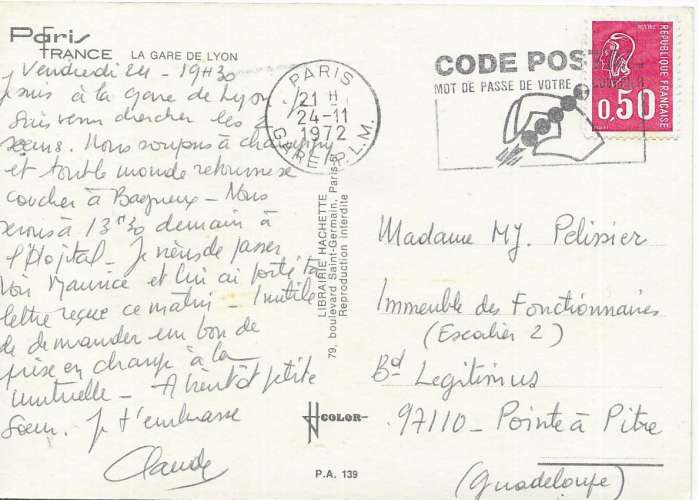 Paris
FRANCE LA GARE DE LYON
Vendredi 24 - 19H30
suis à la gare de Lyon
suis venu chercher les 2
sœurs. Nous soupons à champigny
et tout le monde retourne se
coucher à Bagneux - Nous
serons à 13h30 demain à
l'Hôpital - Je viens de passer
voir Maurice et lui ai porté ta
lettre reçue ce matin - Inutile
de demander un bon de
prise en charge à la
mutuelle - A bientôt petite
sœur. Je t'embrasse
Claude
PARIS
21 H
24-11
1972
GARE P.L.M.
CODE POSTAL
MOT DE PASSE DE VOTRE COURRIER
RÉPUBLIQUE FRANÇAISE
0,50
LIBRAIRIE HACHETTE
79, boulevard Saint-Germain, Paris-6
Reproduction interdite
COLOR
P.A. 139
Madame MJ. Pelissier
Immeuble des Fonctionnaires
(Escalier 2)
Bd Legitimus
97110 - Pointe à Pitre
(Guadeloupe)